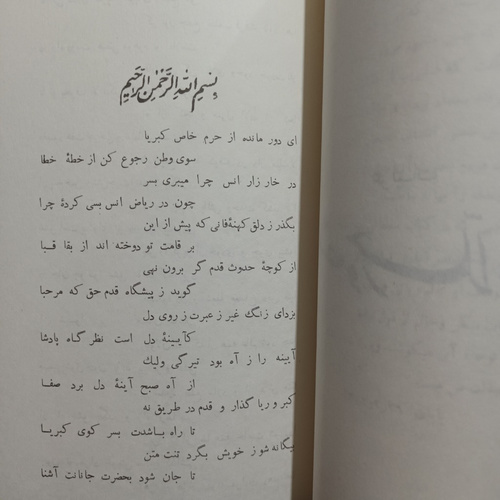 بسم الله الرحمن الرحیم
ای دور مانده از حرم خاص کبریا
سوی وطن رجوع کن از خطهٔ خطا
در خار زار انس چرا میبری بسر
چون در ریاض انس بسی کردهٔ چرا
بگذر ز دلق کهنهٔ فانی که پیش از این
بر قامت تو دوخته اند از بقا قبا
از کوچهٔ حدوث قدم گر برون نهی
گوید ز پیشگاه قدم حق که مرحبا
بزدای زنگ غیر ز عبرت ز روی دل
کآیینهٔ دل است نظر گاه پادشا
آیینه را ز آه بود تیرگی ولیك
از آه صبح آینهٔ دل برد صفا
کبر و ریا گذار و قدم در طریق نه
تا راه باشدت بسر کوی کبریا
بیگانه شو ز خویش بگرد تنت متن
تا جان شود بحضرت جانانت آشنا